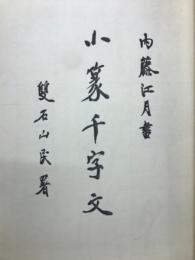 内藤江月書
小篆千字文
雙石山民署